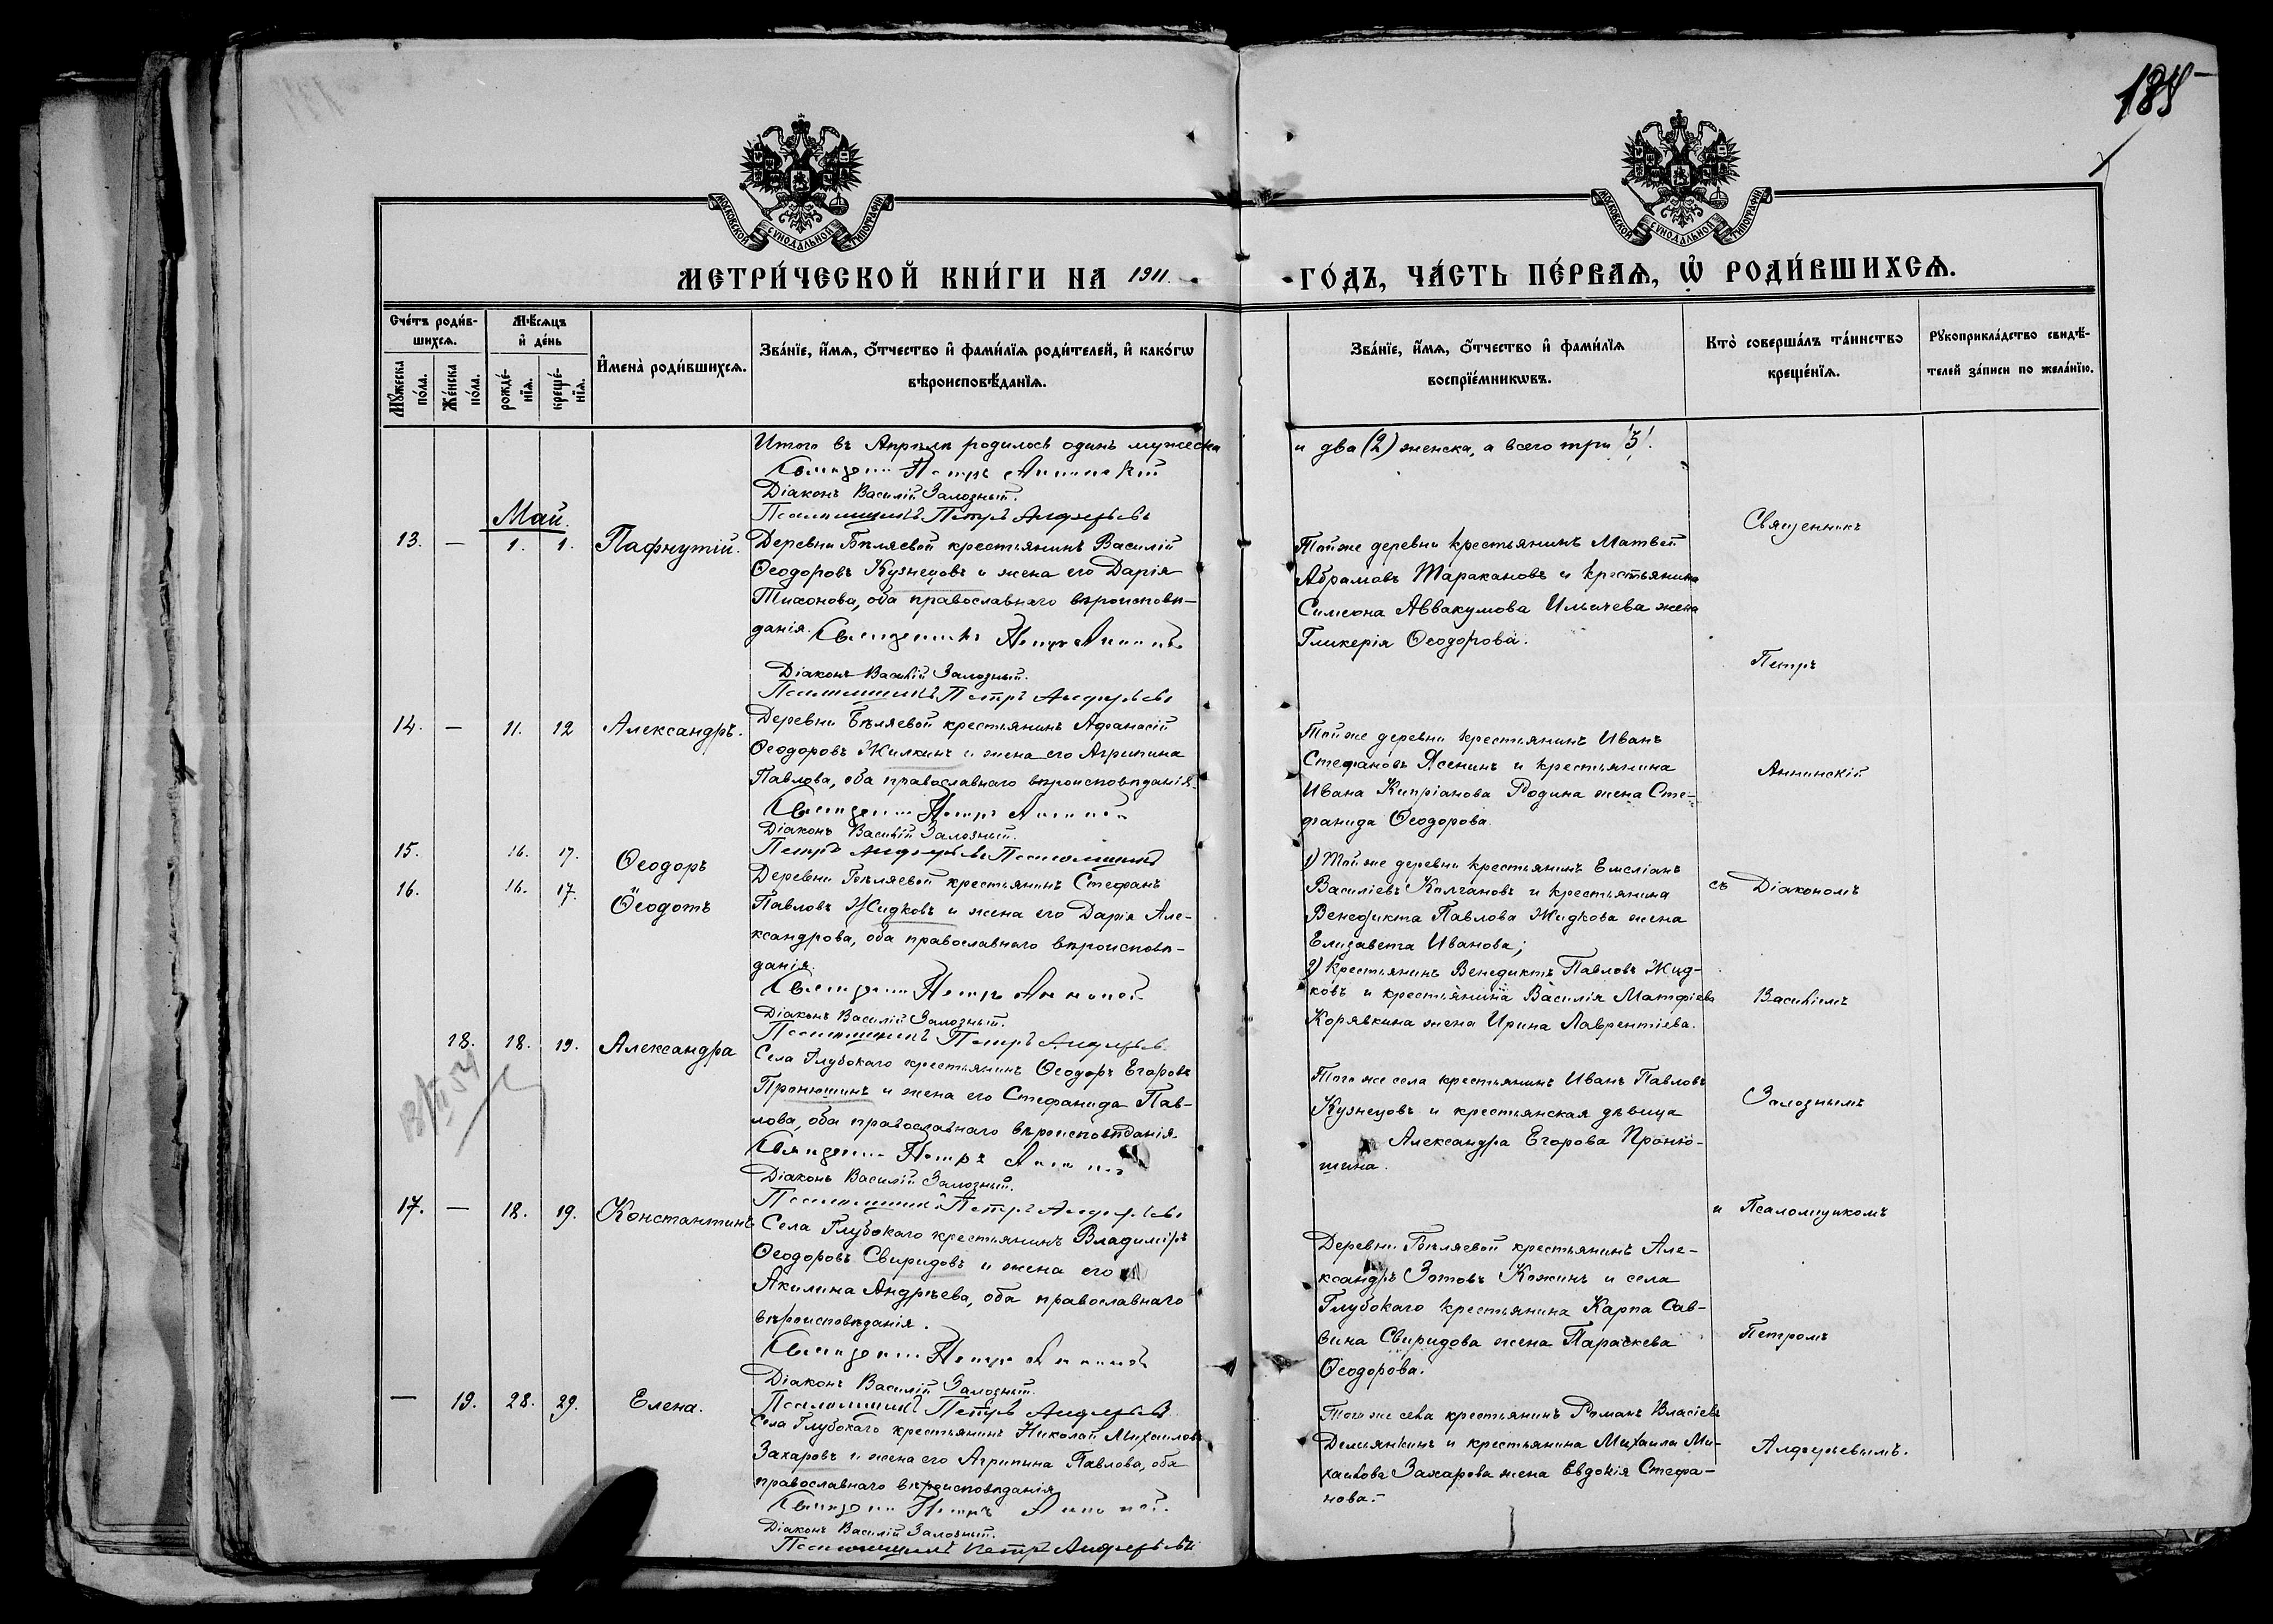 185
МОСКОВСКОЙ СѴНОДАЛЬНОЙ ТИПОГРАФІИ
МОСКОВСКОЙ СѴНОДАЛЬНОЙ ТИПОГРАФІИ
МЕТРИ́ЧЕСКОЙ КНИ́ГИ НА 1911. ГО́ДЪ, ЧА́СТЬ ПЕ́РВАѦ, Ѡ҆ РОДИ́ВШИХСѦ.
Сче́тъ роди́в-
шихсѧ.
Мꙋ́жеска по́ла.
Же́нска по́ла.
Мѣ́сѧцъ
и҆ де́нь
рожде́-
нїѧ.
креще́-
нїѧ.
И҆мена̀ роди́вшихсѧ.
Зва́нїе, и҆́мѧ, ѻ҆́тчество и҆ фами́лїѧ роди́телей, и҆ како́гѡ
вѣроисповѣ́данїѧ.
Зва́нїе, и҆́мѧ, ѻ҆́тчество и҆ фами́лїѧ
воспрїе́мникѡвъ.
Кто̀ соверша́лъ та́инство
креще́нїѧ.
Рꙋкоприкла́дство свидѣ́-
телей за́писи по жела́нїю.
Итого въ Апрѣлѣ родилось одинъ мужеска
и два (2) женска, а всего три /3/.
Священникъ Петръ Аннинскій
Діаконъ Василій Залозный.
Псаломщикъ Петръ Алферьевъ
Май.
13. — 1. 1. Пафнутій.
Деревни Бѣляевой крестьянинъ Василій
Ѳеодоровъ Кузнецовъ и жена его Дарія
Тихонова, оба православнаго вѣроисповѣ-
данія. Священникъ Петръ Аннинскій
Діаконъ Василій Залозный.
Псаломщикъ Петръ Алферьевъ
Той же деревни крестьянинъ Матвей
Абрамовъ Таракановъ и крестьянина
Симеона Аввакумова Ильичева жена
Гликерія Ѳеодорова.
14. — 11. 12 Александръ.
Деревни Бѣляевой крестьянинъ Афанасій
Ѳеодоровъ Жилкинъ и жена его Агрипина
Павлова, оба православнаго вѣроисповѣданія.
Священникъ Петръ Аннинскій
Діаконъ Василій Залозный.
Петръ Алферьевъ Псаломщикъ
Той же деревни крестьянинъ Иванъ
Стефановъ Ясенинъ и крестьянина
Ивана Кипріанова Родина жена Сте-
фанида Ѳеодорова.
15. 16. 17. Ѳеодоръ
16. 16. 17. Ѳеодотъ
Деревни Бѣляевой крестьянинъ Стефанъ
Павловъ Жидковъ и жена его Дарія Але-
ксандрова, оба православнаго вѣроисповѣ-
данія.
Священникъ Петръ Аннинскій
Діаконъ Василій Залозный.
Псаломщикъ Петръ Алферьевъ
1) Той же деревни крестьянинъ Емеліанъ
Василіевъ Колгановъ и крестьянина
Венедикта Павлова Жидкова жена
Елизавета Иванова;
2) крестьянинъ Венедиктъ Павловъ Жид-
ковъ и крестьянина Василія Матфіева
Корявкина жена Ирина Лаврентіева.
18. 18. 19. Александра
Села Глубокаго крестьянинъ Ѳеодоръ Егоровъ
Пронюшинъ и жена его Стефанида Пав-
лова, оба православнаго вѣроисповѣданія.
Священникъ Петръ Аннинскій
Діаконъ Василій Залозный.
Псаломщикъ Петръ Алферьевъ
Того же села крестьянинъ Иванъ Павловъ
Кузнецовъ и крестьянская дѣвица
Александра Егорова Проню-
шина.
17. — 18. 19. Константинъ
Села Глубокаго крестьянинъ Владиміръ
Ѳеодоровъ Свиридовъ и жена его
Акилина Андреева, оба православнаго
вѣроисповѣданія.
Священникъ Петръ Аннинскій
Діаконъ Василій Залозный.
Псаломщикъ Петръ Алферьевъ
Деревни Бѣляевой крестьянинъ Але-
ксандръ Зотовъ Кожинъ и села
Глубокаго крестьянина Карпа Сав-
вина Свиридова жена Параскева
Ѳеодорова.
— 19. 28. 29. Елена.
Села Глубокаго крестьянинъ Николай Михаиловъ
Захаровъ и жена его Агрипина Павлова, оба
православнаго вѣроисповѣданія
Священникъ Петръ Аннинскій
Діаконъ Василій Залозный.
Псаломщикъ Петръ Алферьевъ
Того же села крестьянинъ Романъ Власіевъ
Демьянкинъ и крестьянина Михаила Ми-
хаилова Захарова жена Евдокія Стефа-
нова.
Священникъ
Петръ
Аннинскій
съ Діакономъ
Василіемъ
Залознымъ
и Псаломщикомъ
Петромъ
Алферьевымъ.